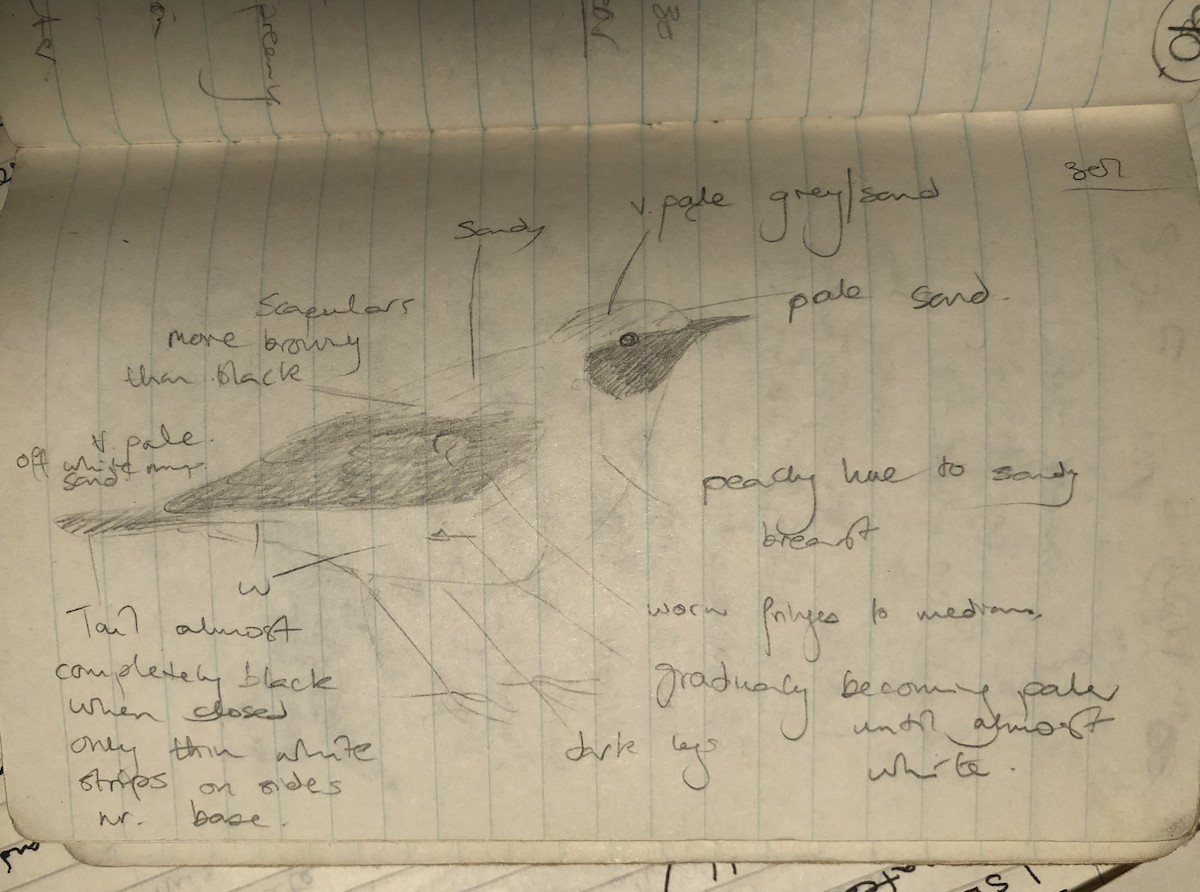 v. pale grey/sand
Sandy
pale sand.
Scapulars
more browny
than black
v. pale.
off white
sand
peachy hue to sandy
breast
W
worn fringes to medians,
Tail almost
completely black
when closed
only thin white
strips on sides
nr. base.
gradually becoming paler
until almost
white.
dark legs